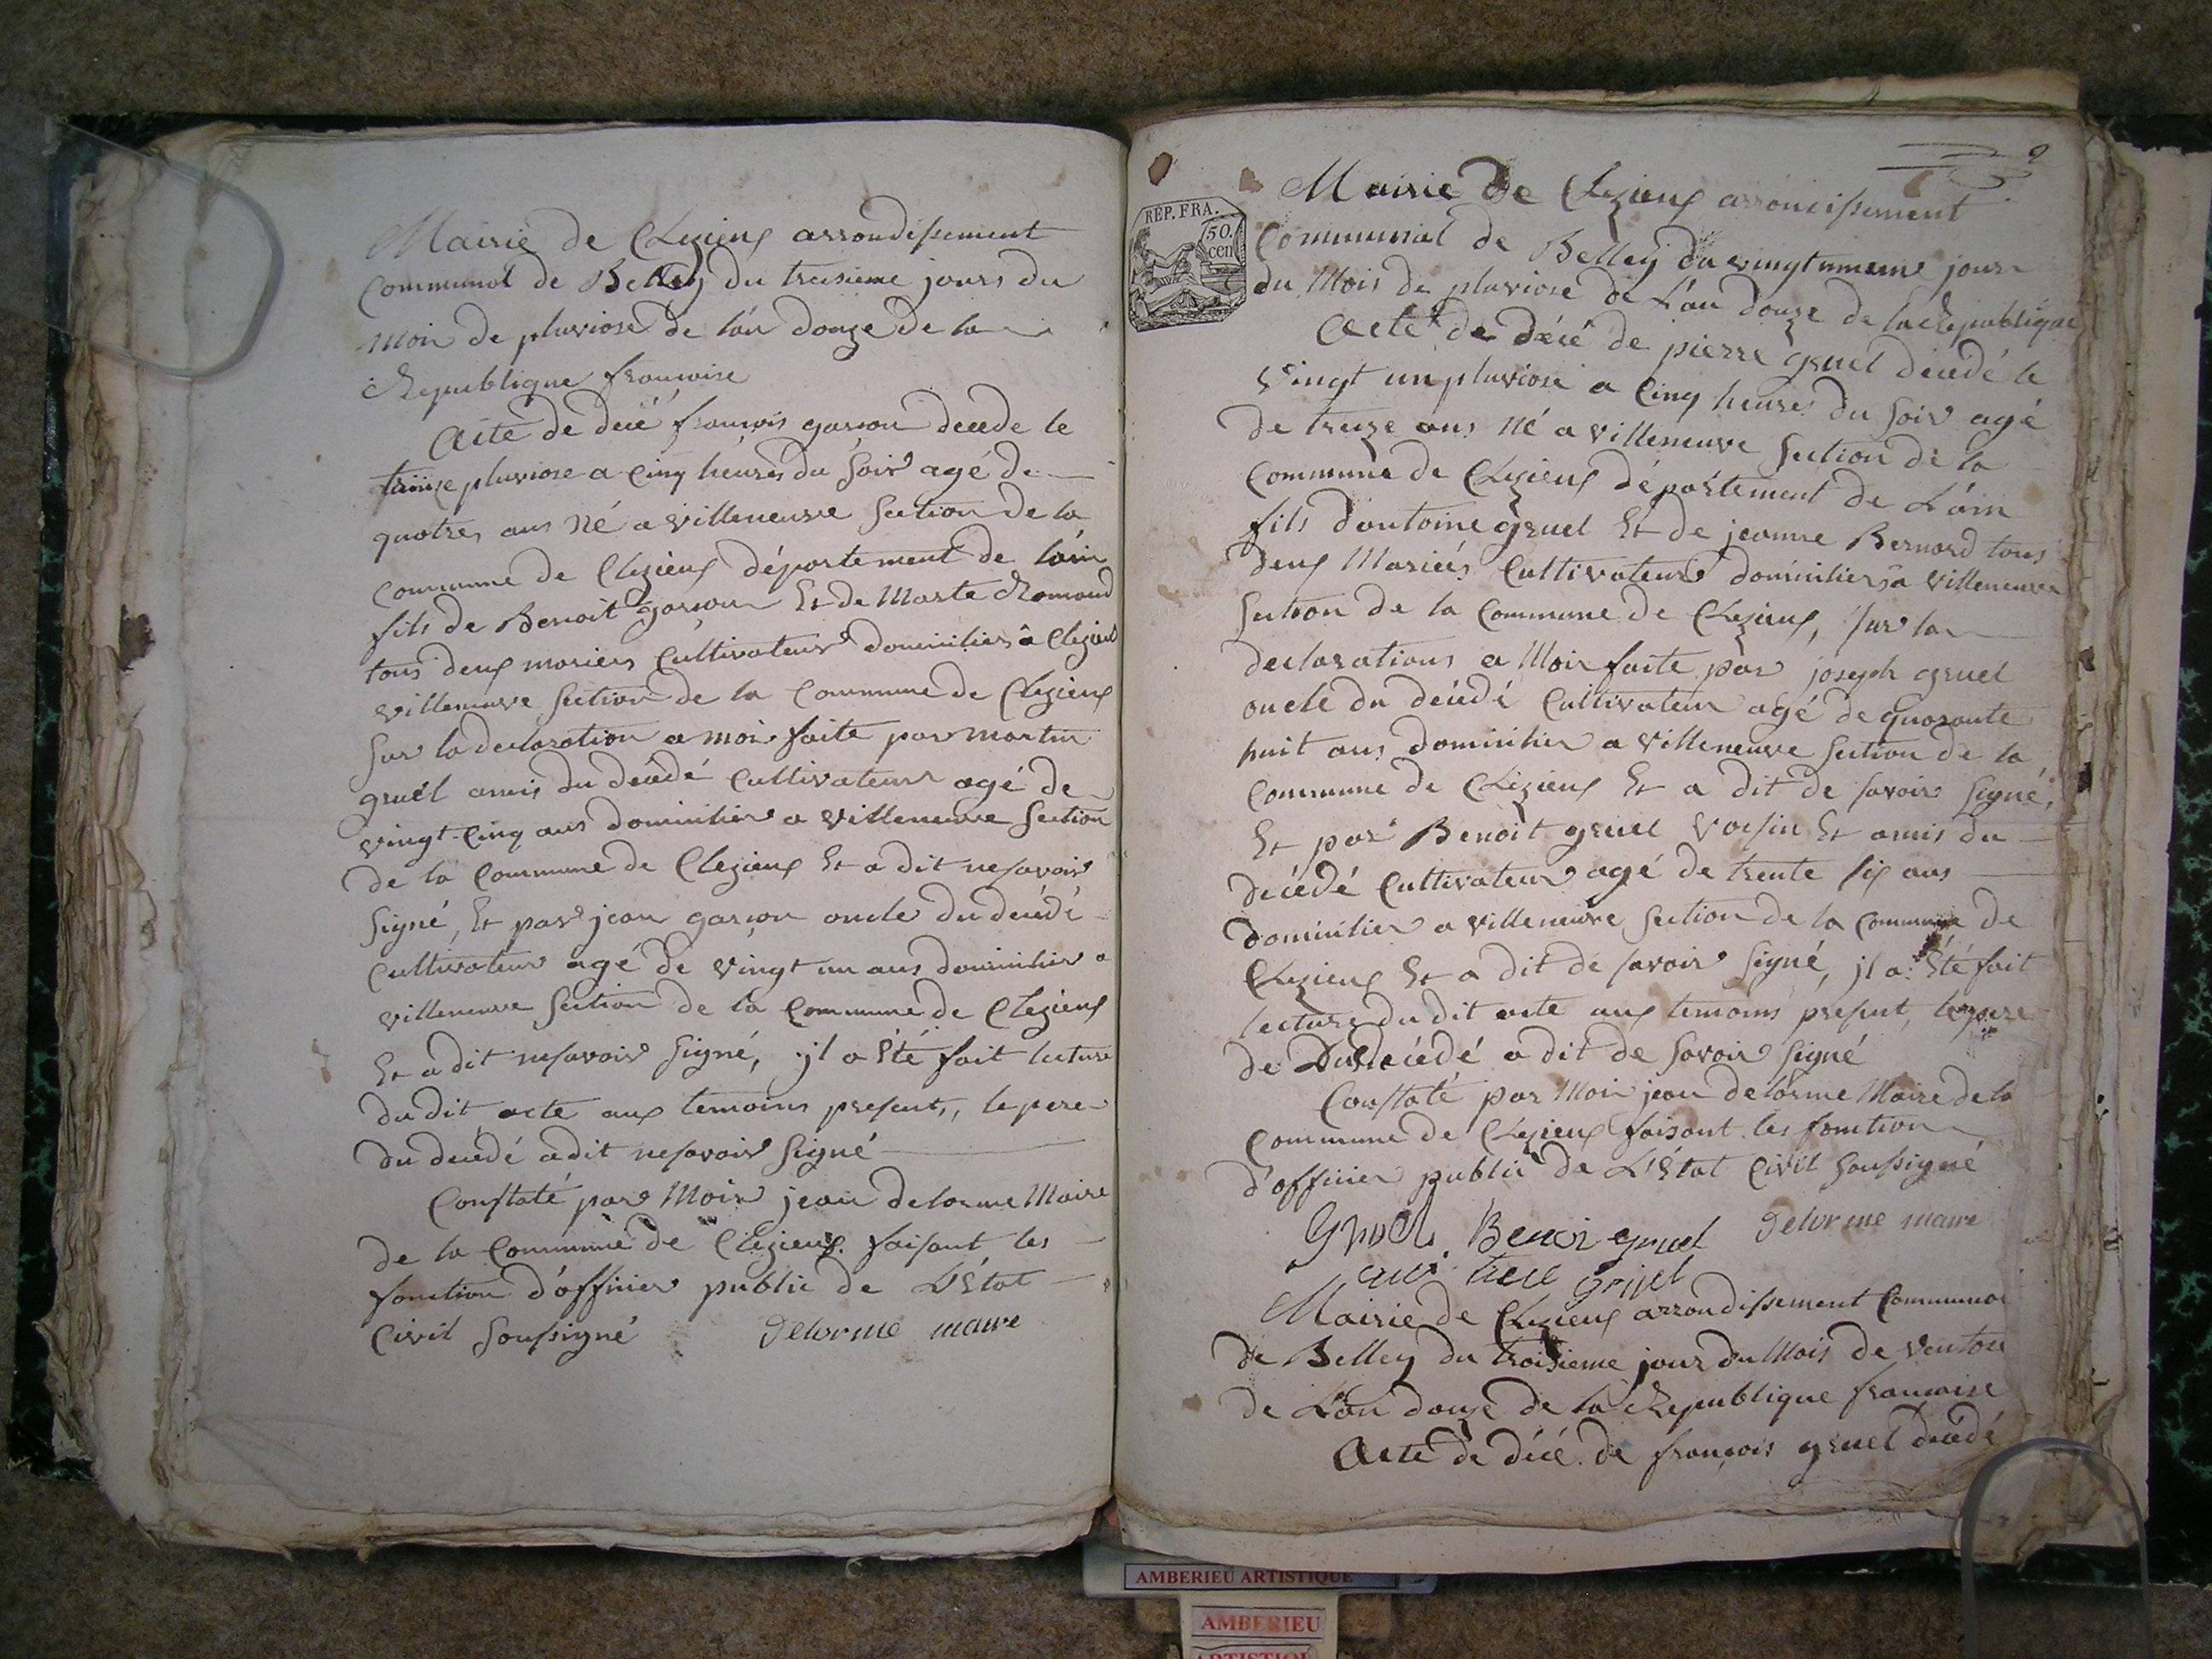 Mairie de Clezieux arrondissement
Communal de Belley du treisieme jours du
Mois de pluviose de l'an douze de la
Republique francoise
Acte de decé francois garson decede le
treize pluviose a Cinq heures du soir agé de
quatres ans Né a villeneuve Section de la
Commune de Clezieux département de l'ain
fils de Benoit garson Et de Marte Romand
tous deux mariers Cultivateurs dominiliers à Clezieux
villeneuve Section de la Commune de Clezieux
Sur la declaration a moi faite par martin
gruel amis du décédé Cultivateur agé de
vingt-cinq ans dominilier a villeneuve Section
de la Commune de Clezieux Et a dit ne savoir
Signé, Et par jean garson oncle du décédé
Cultivateur agé de vingt un ans dominilier a
villeneuve Section de la Commune de Clezieux
Et a dit ne savoir Signé, jl a Eté fait lecture
du dit acte aux temoins present,, le pere
du décédé a dit ne savoir Signé
Constaté par Moir jean delorme Maire
de la Commune de Clezieux faisant les
fonction d'offinier public de L'Etat
Civil soussigné delorme maire
2
REP. FRA.
50.
cen
Mairie de Clezieux arrondissement
Communal de Belley du vingt unieme jours
du Mois de pluviose de L'an douze de la Republique
Acte de décé de pierre gruel décédé le
vingt un pluviose a Cinq heures du soir agé
de treize ans Né a villeneuve Section de la
Commune de Clezieux département de L'ain
fils d'antoine gruel Et de jeanne Bernard tous
deux Mariés Cultivateurs dominiliers a villeneuve
Section de la Commune de Clezieux, Sur la
declarations a Moir faite par joseph gruel
oncle du décédé Cultivateur agé de quarante
huit ans dominilier a villeneuve Section de la
Commune de Clezieux Et a dit de savoir Signé,
Et par Benoit gruel Voisin Et amis du
décédé Cultivateur agé de trente six ans
dominilier a villeneuve Section de la Commune de
Clezieux Et a dit de savoir Signé, jl a Eté fait
lecture du dit acte aux temoins present, le pere
de Du décédé a dit de savoir Signé
Constaté par Moir jean delorme Maire de la
Commune de Clezieux faisant les fonction
d'offinier public de L'Etat Civil soussigné
Benoi gruel delorme maire
gruel
Mairie de Clezieux arrondissement Communal
de Belley du troisieme jour du Mois de Ventose
de L'an douze de la Republique francoise
Acte de décé de françois gruel décédé
AMBERIEU ARTISTIQUE
AMBERIEU
ARTISTIQUE